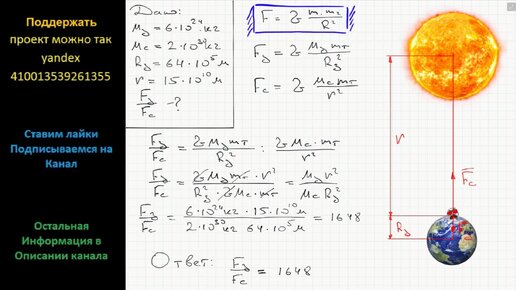 Поддержать
проект можно так
yandex
410013539261355
Ставим лайки
Подписываемся на
Канал
Остальная
Информация в
Описании канала
Дано:
Mз = 6·10²⁴ кг
Mс = 2·10³⁰ кг
Rз = 64·10⁵ м
r = 15·10¹⁰ м
Fз/Fс - ?
F = G m₁m₂/R²
Fз = G Mз mт/Rз²
Fс = G Mс mт/r²
Fз/Fс = G Mз mт/Rз² : G Mс mт/r²
Fз/Fс = G Mз mт · r²/Rз² · G Mс · mт = Mз r²/Mс Rз²
Fз/Fс = 6·10²⁴ кг · 15·10¹⁰ м/2·10³⁰ кг 64·10⁵ м = 1648
Ответ: Fз/Fс = 1648
r
Fс
Rз